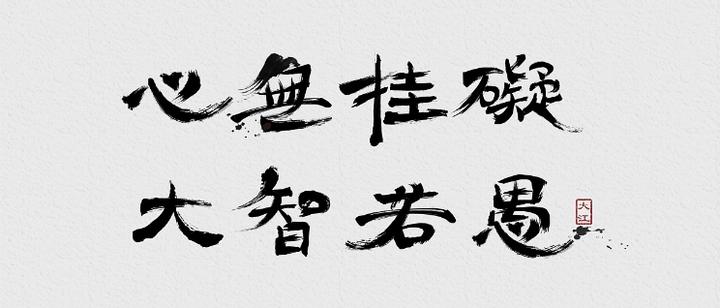 心無挂礙
大智若愚
大江